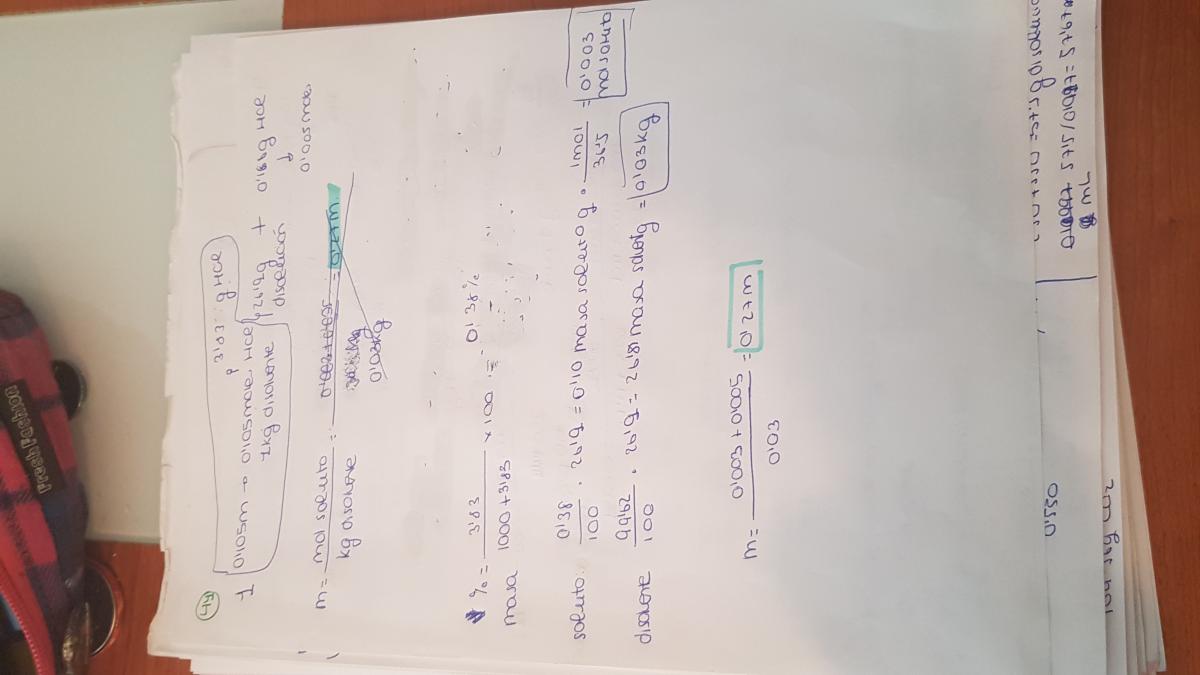 44
1 0'105m → 0'105moles HCl → 3'83 g HCl
1kg disolvente
26'9g disolución + 0'186g HCl
↓
0'005moles
m = mol soluto / kg disolvente = = 0'27m.
0'03kg
% masa = 3'83 / 1000+3'83 × 100 = 0'38%
soluto: 0'38 / 100 · 26'9g = 0'10 masa soluto g · 1mol / 36'5 = 0'003 mol soluto
disolvente 99'62 / 100 · 26'9g = 26'81 masa solvg = 0'03kg
m = 0'003 + 0'005 / 0'03 = 0'27m
0'550
mL
FreeshFashion